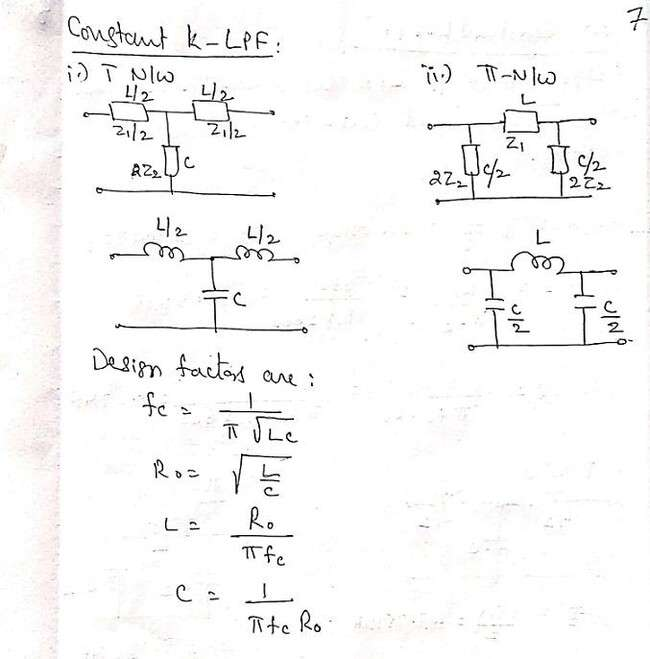 7
Constant k-LPF:
i.) T N/W
L/2 L/2
Z₁/2 Z₁/2
2Z₂ C
ii.) π-N/W
L
Z₁
2Z₂ C/2 C/2
2Z₂
L/2 L/2
C
L
C/2 C/2
Design factors are:
fc = 1/(π √LC)
R₀ = √(L/C)
L = R₀/(πfc)
C = 1/(πfc R₀)